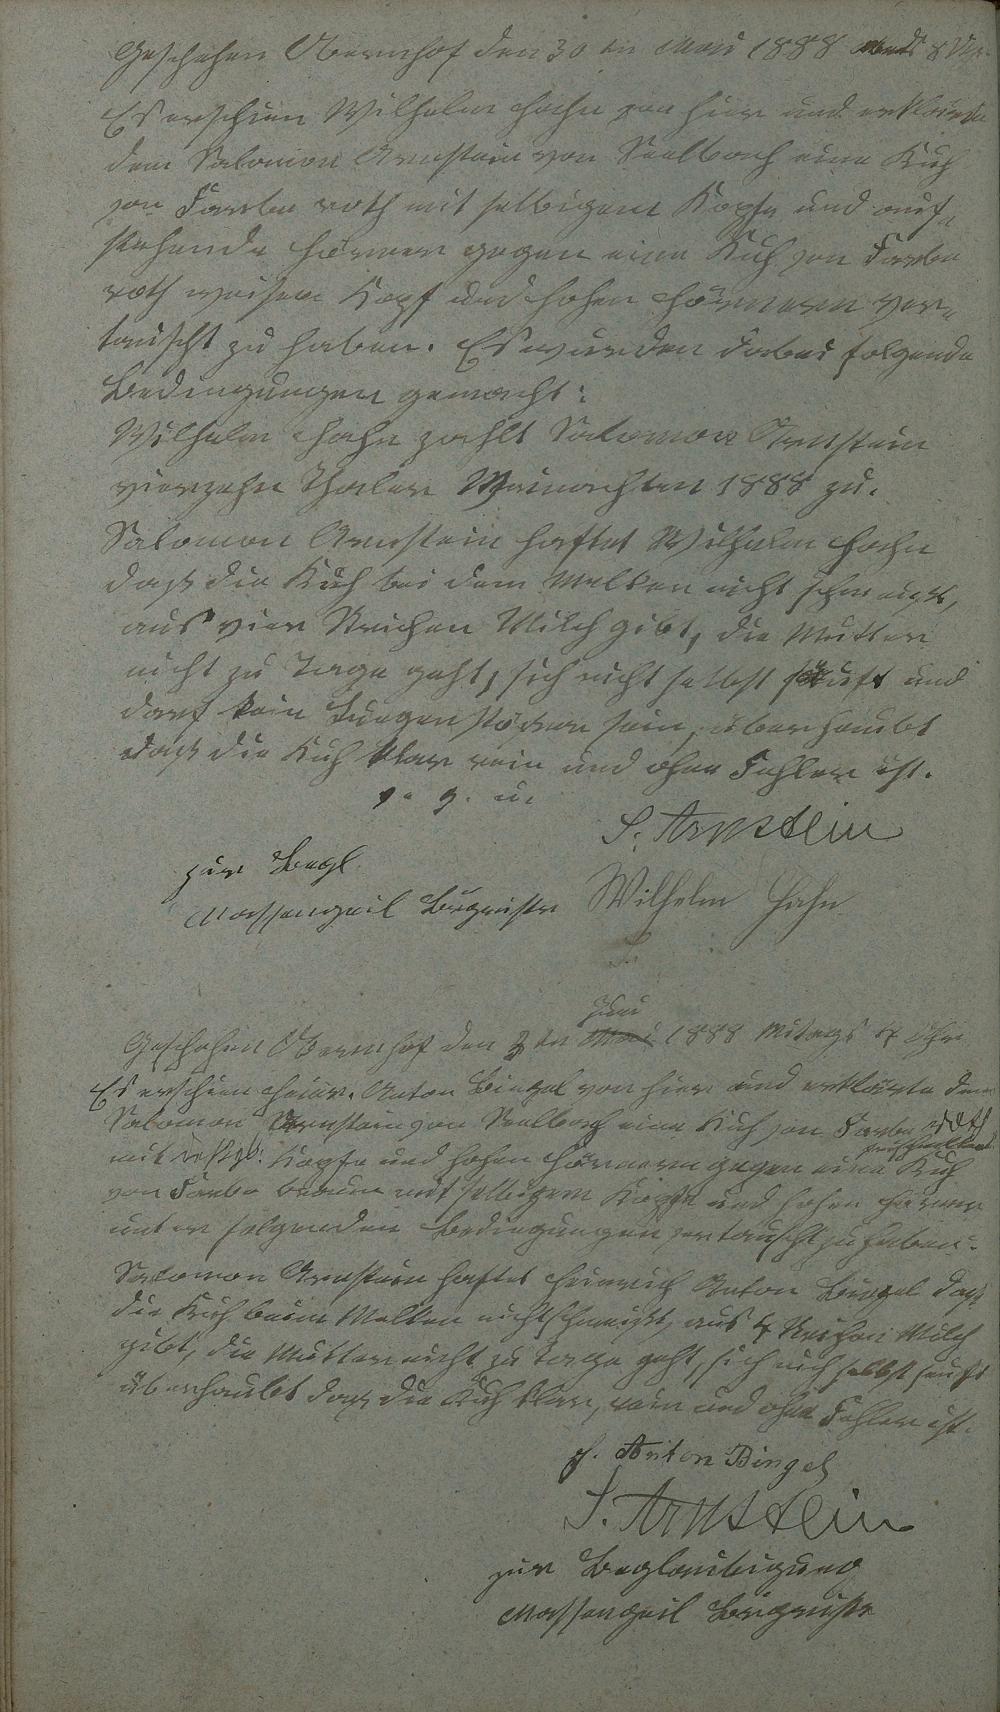 Geschehen Obernhof den 30 ten Mai 1888 abends 8 Uhr.
Es erschien Wilhelm Hahn von hier und erklärte
dem Salomon Arnstein von Seelbach eine Kuh
von Farbe roth mit selbigem Kopfe und auf-
stehende Hörner gegen eine Kuh von Farbe
roth weisen Kopf und hohen Hörnern ver-
tauscht zu haben. Es wurden dabei folgende
Bedingungen gemacht:
Wilhelm Hahn zahlt Salomon Arnstein
vierzehn Thaler Weinachten 1888 zu.
Salomon Arnstein haftet Wilhelm Hahn
daß die Kuh bei dem Melken nicht schmeißt,
aus vier Strichen Milch gibt, die Mutter
nicht zu Tage geht, sich nicht selbst säuft und
darf kein sein, überhaubt
daß die Kuh klar rein und ohne Fehler ist.
v. g. u.
S. Arnstein
zur Begl.
Massengeil Bürgmstr Wilhelm Hahn
Juni
Geschehen Obernhof den 3 ten Mai 1888 Mitags 4 Uhr
Es erschien Heinr. Anton Bingel von hier und erklärte dem
Salomon Arnstein von Seelbach eine Kuh von Farbe roth
mit Kopfe und hohen Hörnern gegen eine Kuh
von Farbe braun mit selbigem Kopfe und hohen Hörner
unter folgenden Bedingungen vertauscht zu haben.
Salomon Arnstein haftet Heinrich Anton Bingel daß
die Kuh beim Melken nicht schmeißt, aus 4 Strichen Milch
gibt, die Mutter nicht zu Tage geht, sich nich selbst säuft
überhaubt daß die Kuh klar, rein und ohne Fehler ist.
H. Anton Bingel
S. Arnstein
zur Beglaubigung
Massengeil Bürgmstr